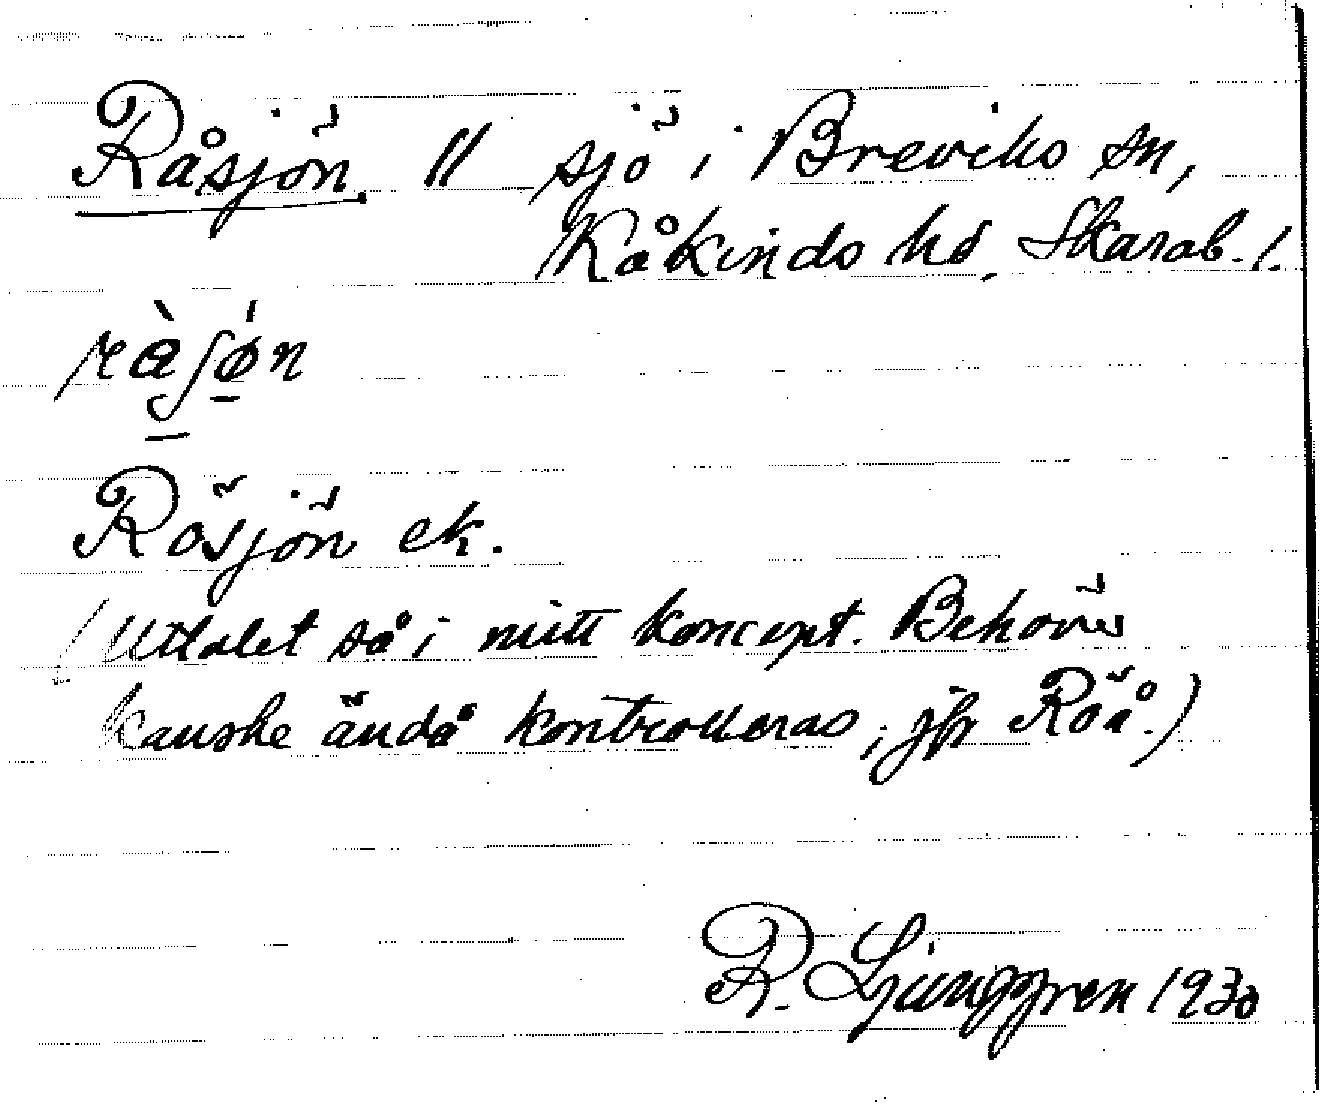 Råsjön. // sjö i Breviks sn,
Kåkinds hd, Skarab. l.
Rösjön ek.
(Uttalet så i mitt koncept. Behöver
kanske ändå kontrolleras, jfr Röå.)
R. Ljunggren 1930